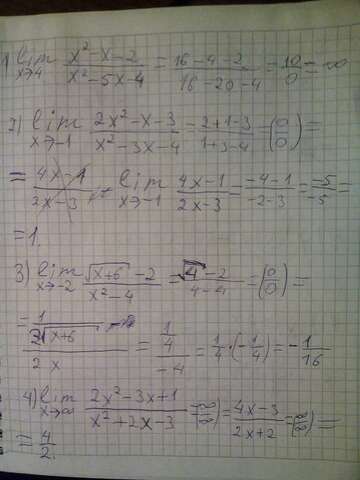 1) lim x→4 (x²-x-2)/(x²-5x-4) = (16-4-2)/(16-20-4) = 10/0 = ∞
2) lim x→-1 (2x²-x-3)/(x²-3x-4) = (2+1-3)/(1+3-4) = (0/0) =
= (4x-1)/(2x-3) lim x→-1 (4x-1)/(2x-3) = (-4-1)/(-2-3) = -5/-5 =
= 1.
3) lim x→-2 (√(x+6) -2)/(x²-4) = (√4 -2)/(4-4) = (0/0) =
= (1/(2√(x+6)))/(2x) = (1/4)/(-4) = 1/4·(-1/4) = -1/16
4) lim x→∞ (2x²-3x+1)/(x²+2x-3) = (∞/∞) = (4x-3)/(2x+2) = (∞/∞) =
= 4/2